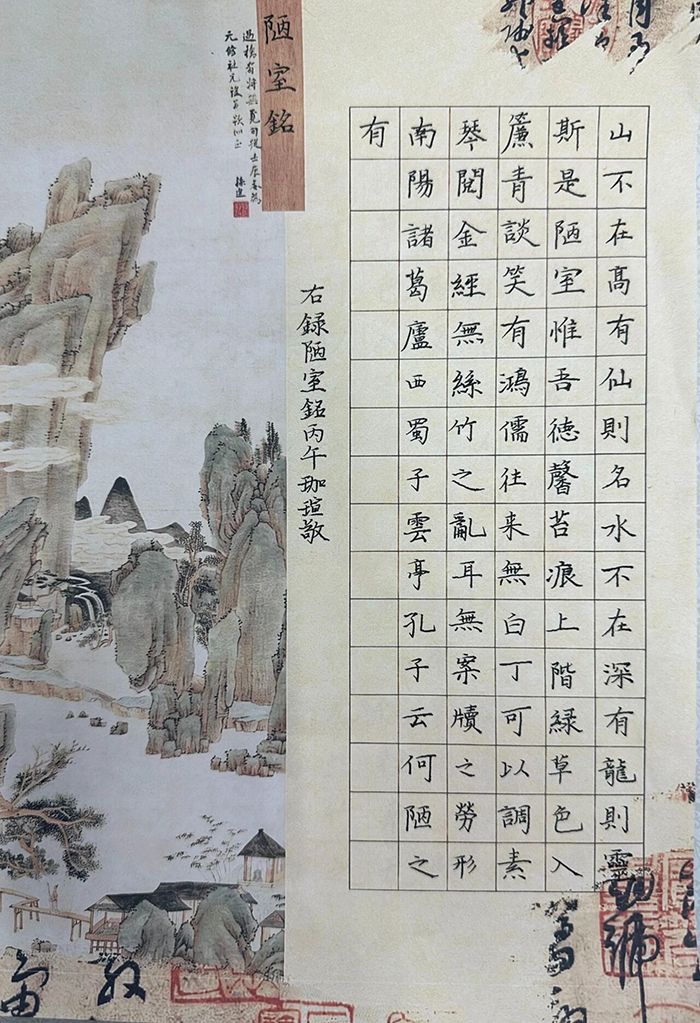 山不在高有仙則名水不在深有龍則靈
斯是陋室惟吾徳馨苔痕上階緑草色入
簾青談笑有鴻儒往来無白丁可以調素
琴閲金經無絲竹之亂耳無案牘之勞形
南陽諸葛廬西蜀子雲亭孔子云何陋之
有
右録陋室銘丙午珈瑄敬
陋室銘